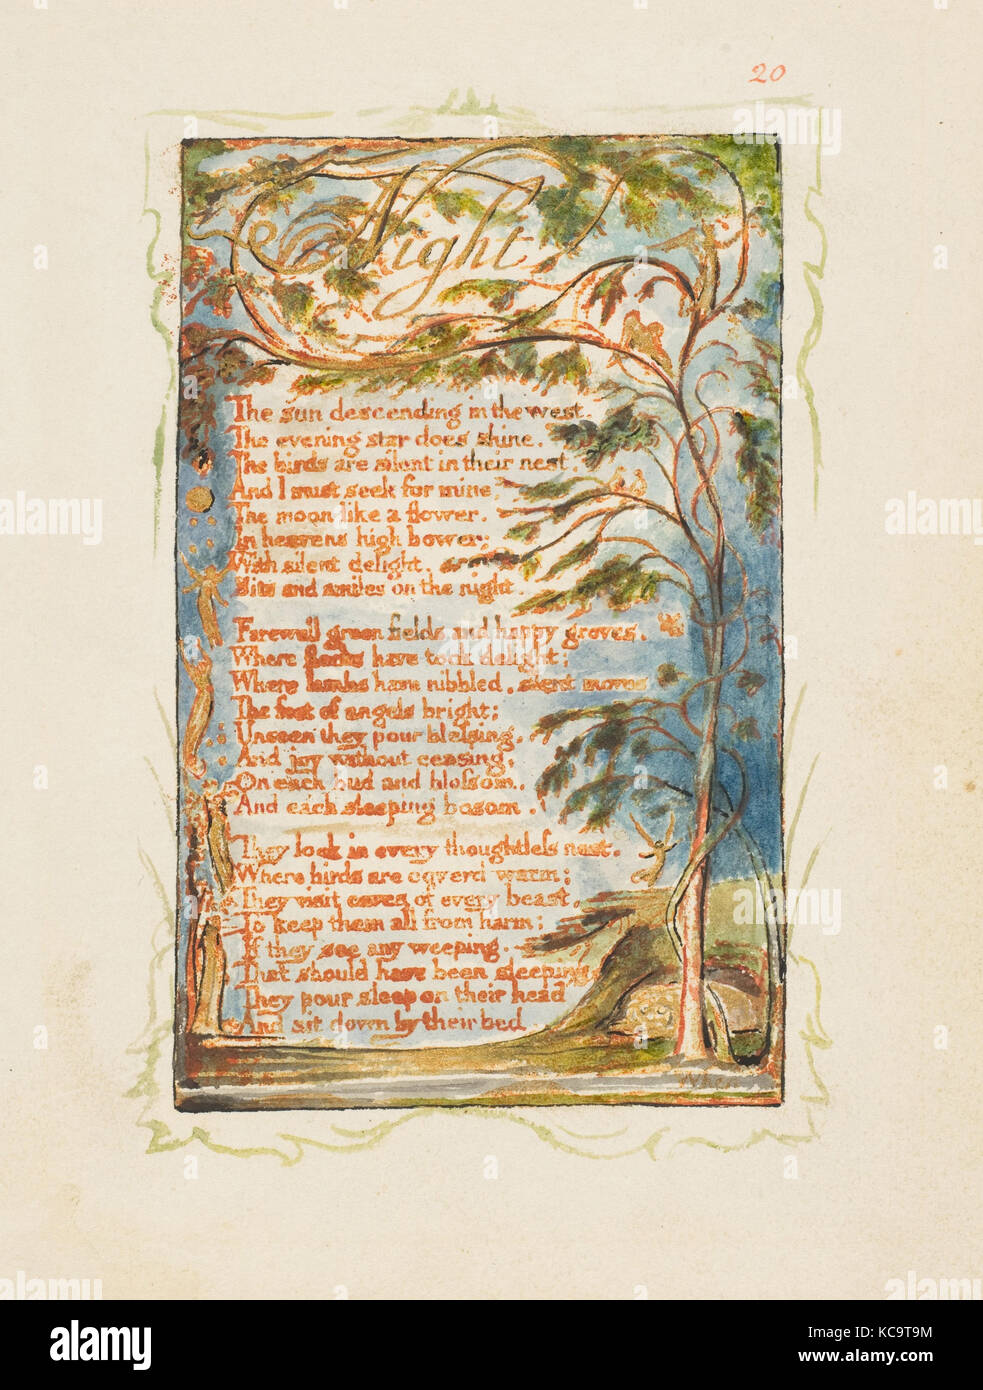 20
Night
The sun descending in the west.
The evening star does shine.
The birds are silent in their nest.
And I must seek for mine,
The moon like a flower.
In heavens high bower;
With silent delight.
Sits and smiles on the night.
Farewell green fields and happy groves.
Where flocks have took delight;
Where lambs have nibbled, silent moves
The feet of angels bright;
Unseen they pour blessing.
And joy without ceasing.
On each bud and blossom.
And each sleeping bosom.
They look in every thoughtless nest.
Where birds are coverd warm;
They visit caves of every beast.
To keep them all from harm;
If they see any weeping.
That should have been sleeping
They pour sleep on their head
And sit down by their bed
When
alamy
Image ID: KC9T9M
www.alamy.com